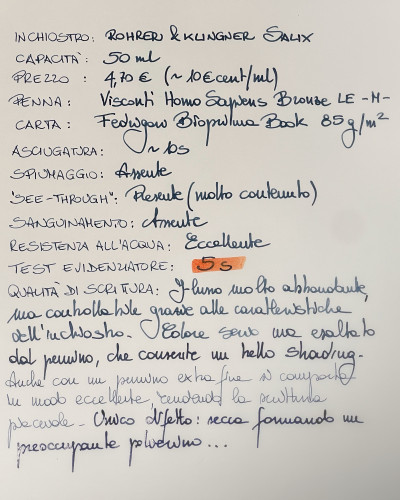 INCHIOSTRO: ROHRER & KLINGNER SALIX
CAPACITÀ: 50 ml
PREZZO: 4,70 € (~ 10 €cent/ml)
PENNA: Visconti Homo Sapiens Bronze LE -M-
CARTA: Fedrigoni Bioprima Book 85g/m²
ASCIUGATURA: ~ 10s
SPIUMAGGIO: Assente
"SEE-THROUGH": Presente (molto contenuto)
SANGUINAMENTO: Assente
RESISTENZA ALL'ACQUA: Eccellente
TEST EVIDENZIATORE: 5s
QUALITÀ DI SCRITTURA: Flusso molto abbondante,
ma controllabile grazie alle caratteristiche
dell'inchiostro. Colore serio ma esaltato
dal pennino, che consente un bello shading.
Anche con un pennino extra fine si comporta
in modo eccellente, rendendo la scrittura
piacevole. Unico difetto: secca formando un
preoccupante polverino...